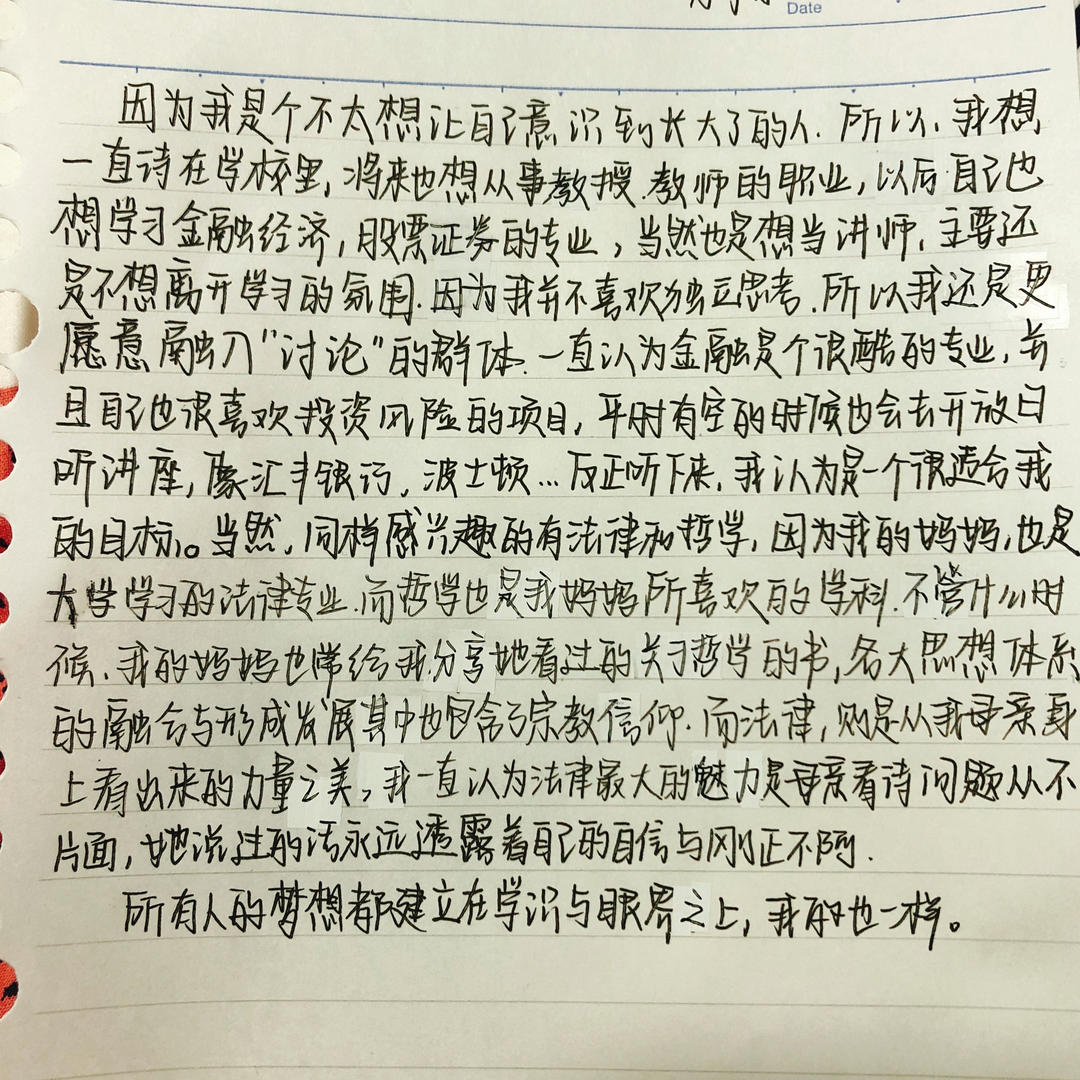 Date
因为我是个不太想让自己意识到长大了的人.所以,我想
一直待在学校里,将来也想从事教授.教师的职业,以后自己也
想学习金融经济,股票证券的专业,当然也是想当讲师,主要还
是不想离开学习的氛围.因为我并不喜欢独立思考.所以我还是更
愿意融入“讨论”的群体.一直认为金融是个很酷的专业,并
且自己也很喜欢投资风险的项目,平时有空的时候也会去开放日
听讲座,像汇丰银行,波士顿...反正听下来,我认为是一个很适合我
的目标。当然,同样感兴趣的有法律和哲学,因为我的妈妈,也是
大学学习的法律专业.而哲学也是我妈妈所喜欢的学科.不管什么时
候.我的妈妈也常给我分享她看过的关于哲学的书,各大思想体系
的融合与形成发展其中也包含了宗教信仰.而法律,则是从我母亲身
上看出来的力量之美,我一直认为法律最大的魅力是母亲看待问题从不
片面,她说过的话永远透露着自己的自信与刚正不阿.
所有人的梦想都建立在学识与眼界之上,我的也一样。